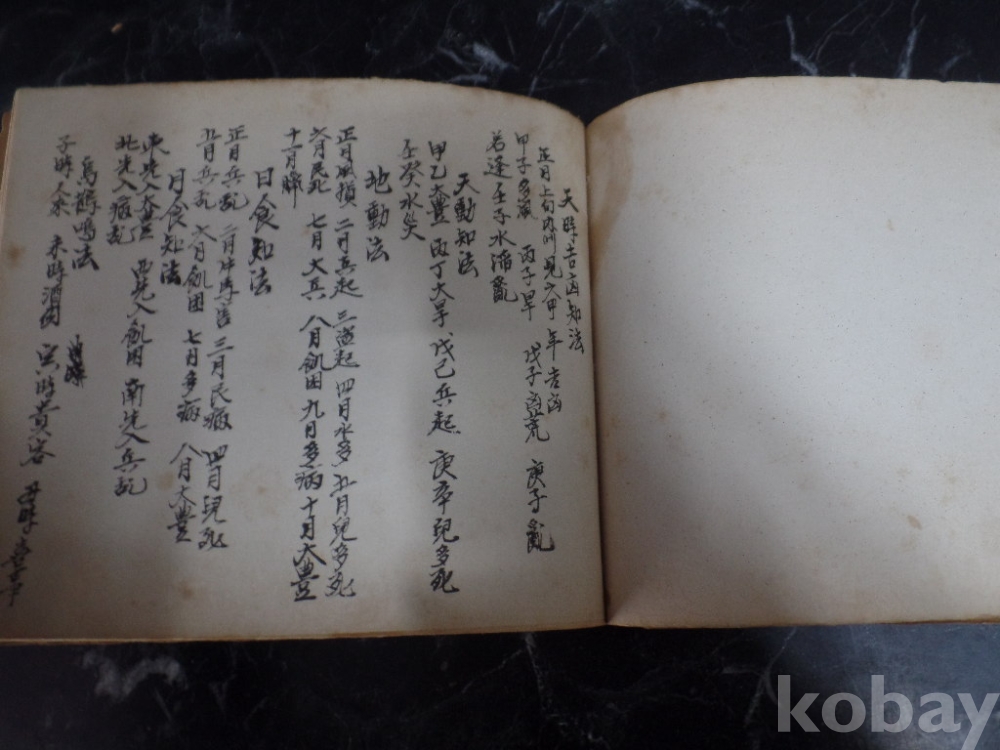 天時吉凶知法
正月上旬內 見六甲 年吉凶
甲子多風 丙子旱 戊子凶荒 庚子亂
若逢壬子水滔亂
天動知法
甲乙大豊 丙丁大旱 戊己兵起 庚辛兒多死
壬癸水災
地動法
正月風損 二月兵起 三盗起 四月水多 五月兒多死
六月民死 七月大兵 八月飢困 九月多病 十月大豊
十一月
日食知法
正月兵乱 二月牛馬害 三月民病 四月兒死
五月兵乱 六月飢困 七月多病 八月大豊
月食知法
東先入大豊 西先入飢困 南先入兵乱
北先入病乱
烏鵲鳴法
子時人來 未時酒肉 寅時貴客 丑時喜事
kobay